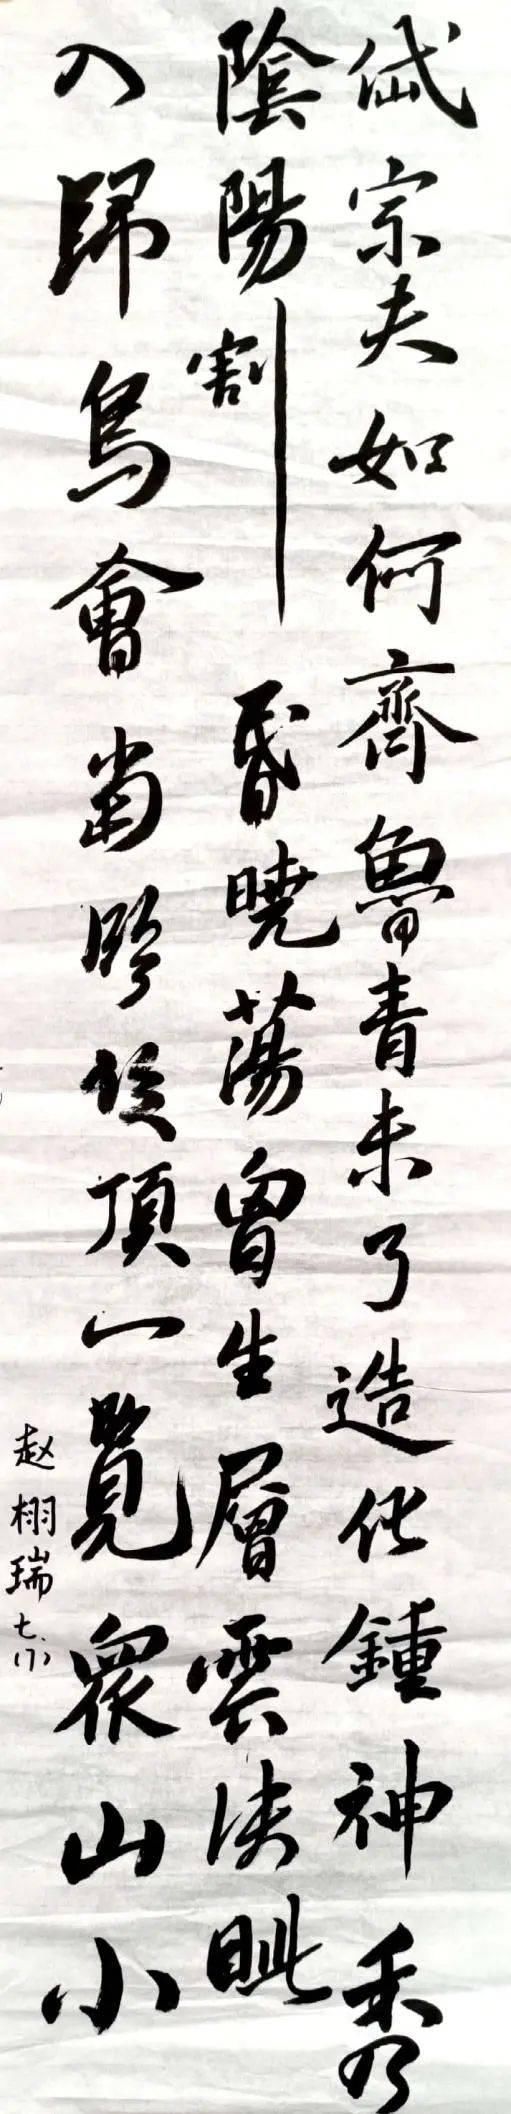 岱宗夫如何齊魯青未了造化鍾神秀
陰陽割昬曉蕩胷生層雲決眦
入歸鳥會當臨絕頂一覽眾山小
赵栩瑞